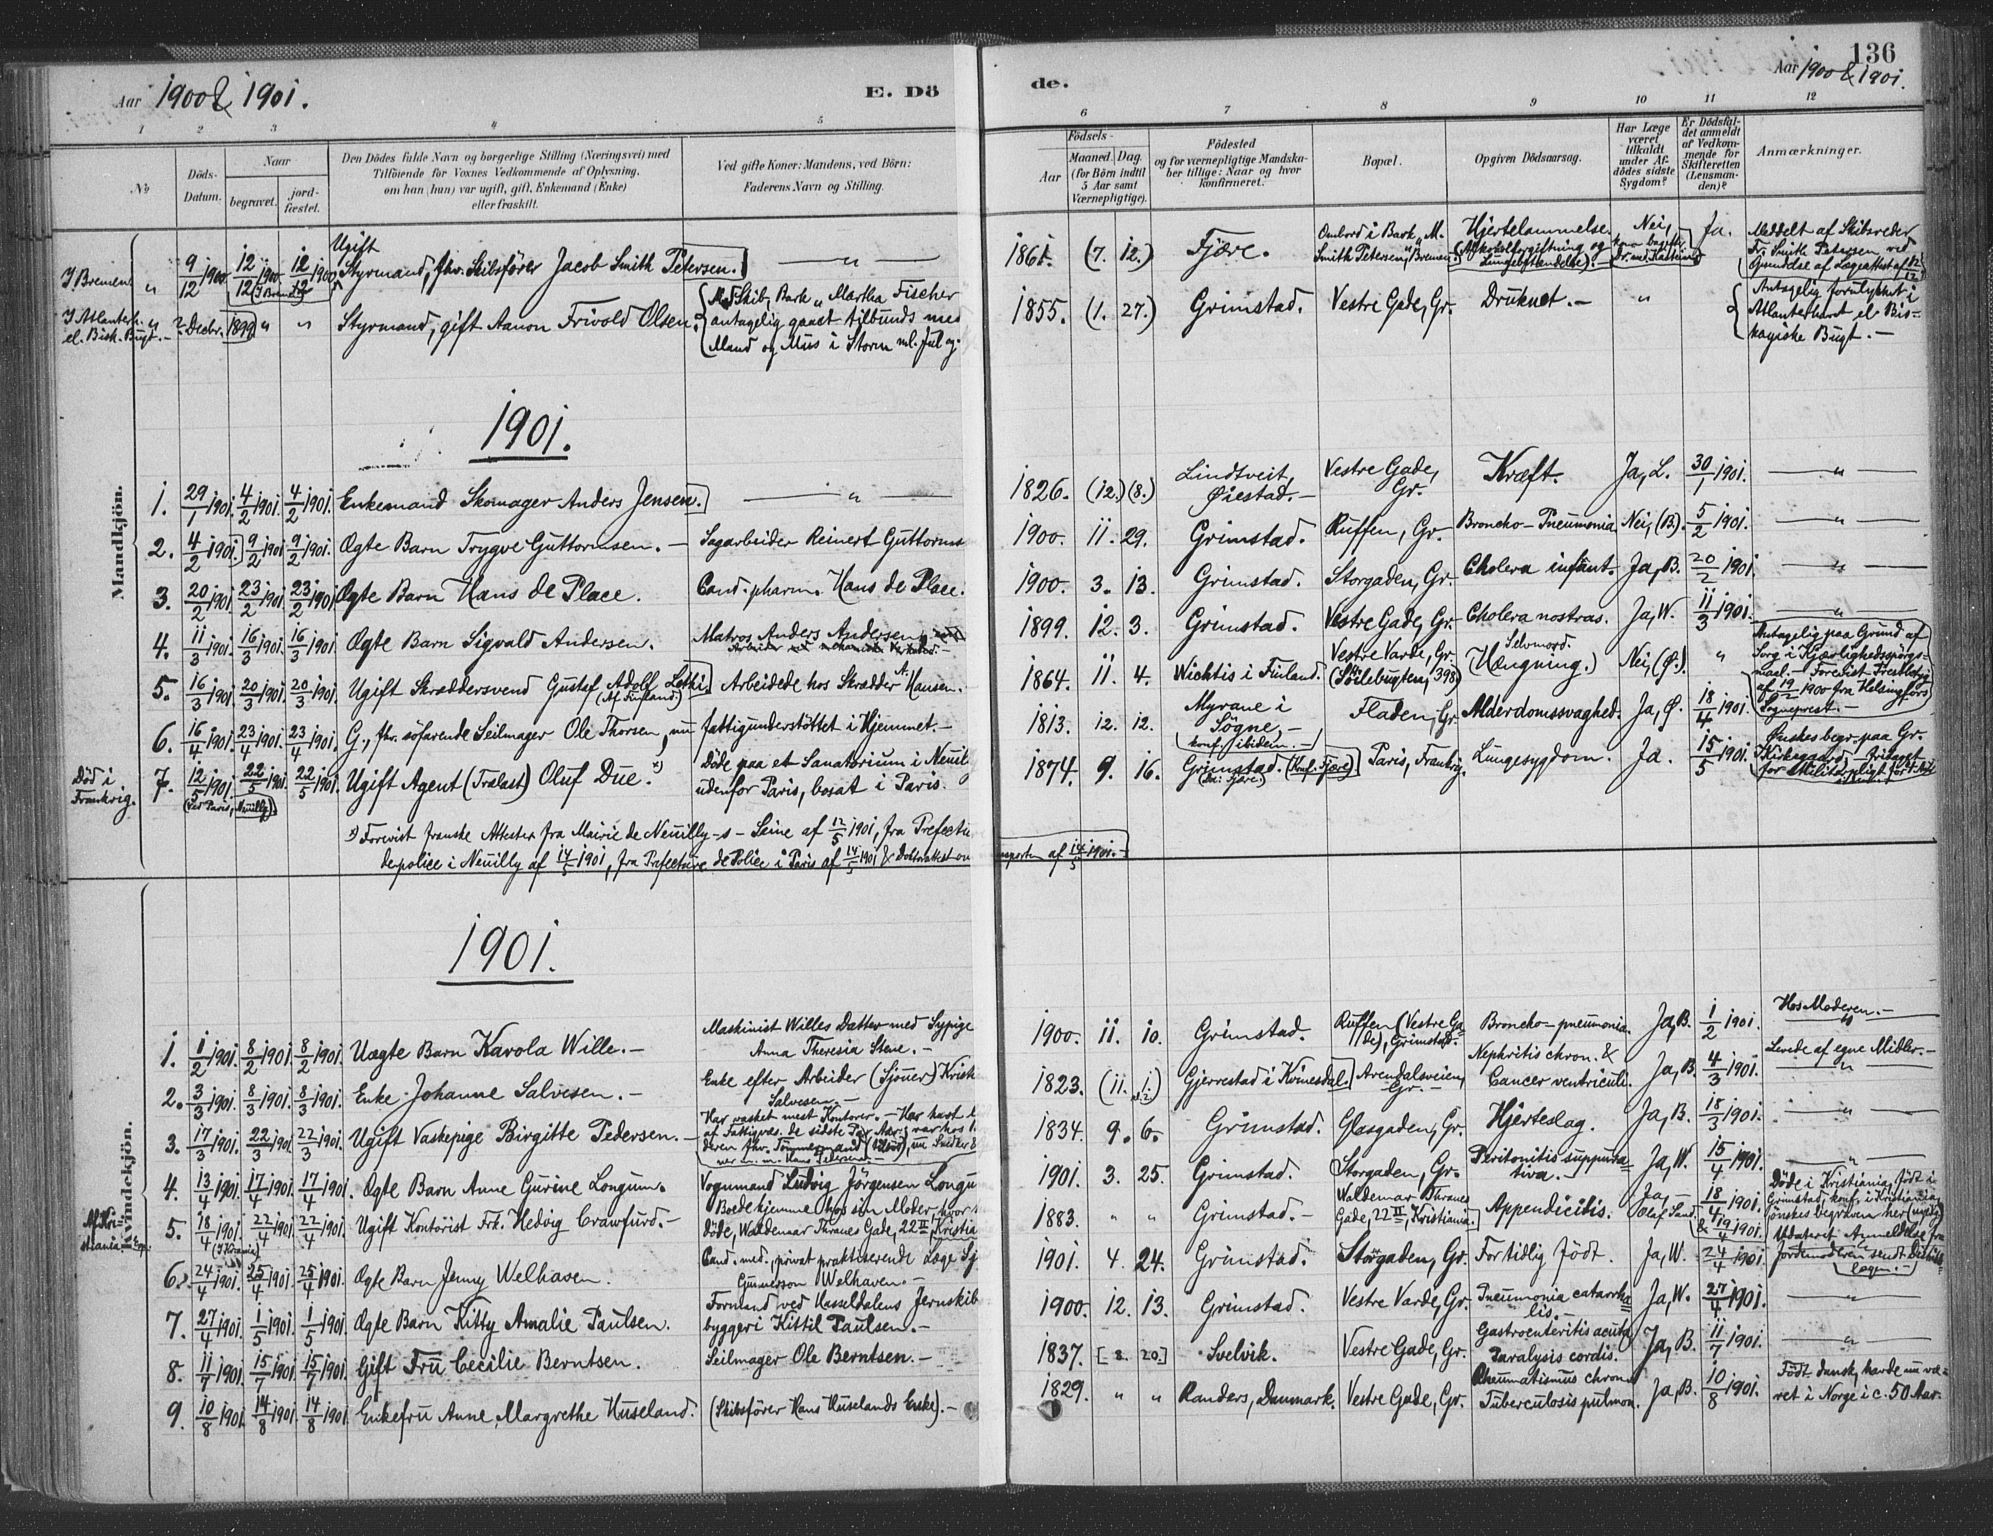 136
Aar 1900 & 1901.
E. Dö
de.
Aar 1900 & 1901.
1 2 3 4 5 6 7 8 9 10 11 12
No
Döds-Datum.
Naar
begravet.
jord-fæstet.
Den Dödes fulde Navn og borgerlige Stilling (Næringsvei) med
Tilföiende for Voxnes Vedkommende af Oplysning,
om han (hun) var ugift, gift, Enkemand (Enke)
eller fraskilt.
Ved gifte Koner: Mandens, ved Börn:
Faderens Navn og Stilling.
Födsels-
Aar
Maaned. Dag.
(for Börn indtil
5 Aar samt
Værnepligtige).
Födested
og for værnepligtige Mandska-
ber tillige: Naar og hvor
konfirmeret.
Bopæl.
Opgiven Dödsaarsag.
Har Læge
været
tilkaldt
under Af-
dödes sidste
Sygdom?
Er Dödsfal-
det anmeldt
af Vedkom-
mende for
Skifteretten
(Lensman-
den)?
Anmærkninger.
Mandkjön.
I Bremen " 9/12 1900 12/12 1900 (I Bremen) 12/12 1900 Ugift
Styrmand, fhv. Skibsförer Jacob Smith Petersen. — " — 1861. (7. 12.) Fjære. Ombord i Bark "M.
Smith Petersen", Bremen Hjertelammelse
(Alkoholforgiftning og
Lungebetændelse). Nei, Ja. Meddelt af Skibsreder
Fr. Smith Petersen ved
I Atlanterh. " ? Decbr. 1899 " " Styrmand, gift Aanon Frivold Olsen. Med Skib, Bark "Martha Fischer
el. Bisk. Bugt. — antagelig gaaet tilbunds med
Mand og Mus i Storm ml. Jul og
1855. (1. 27.) Grimstad. Vestre Gade, Gr. Druknet. — " Antagelig forulykket i
Atlanterhavet el. Bis-
kayiske Bugt. —
1901.
1. 29/1 1901. 4/2 1901. 4/2 1901. Enkemand Skomager Anders Jensen. — " — 1826. (12.) (8.) Lindtveit,
Øiestad. — Vestre Gade,
Gr. Kræft. Ja, L. 30/1 1901. — " —
2. 4/2 1901. 9/2 1901 9/2 1901. Ægte Barn Trygve Guttormsen. — Sagarbeider Reinert Guttorms 1900. 11. 29. Grimstad. Ruffen, Gr. Broncho-Pneumonia Nei, (B). 5/2 1901. — " —
3. 20/2 1901 23/2 1901. 23/2 1901 Ægte Barn Hans de Place. Cand. pharm. Hans de Place. 1900. 3. 13. Grimstad. Storgaden, Gr. Cholera infant. Ja, B. 20/2 1901. — " —
4. 11/3 1901. 16/3 1901. 16/3 1901. Ægte Barn Sigvald Andersen. Matros Anders Andersen 1899. 12. 3. Grimstad. Vestre Gade, Gr. Cholera nostras. Ja, W. 11/3 1901. — " —
5. 16/3 1901. 20/3 1901. 20/3 1901. Ugift Skræddersvend Gustaf Adolf
(Af Finland) Arbeidede hos Skrædder A. Hansen. 1864. 11. 4. Wichtis i Finland. Vestre Varde, Gr. Selvmord.
(Hængning.) Nei, (Ø.) " Antagelig paa Grund af
Sorg i Kjærlighedsspörgs-
maal. — Forevist Præstebevis
af 19/2 1900 fra Helsingfors
Sogneprest. —
6. 16/4 1901. 23/4 1901. 23/4 1901. G., fhv. söfarende Seilmager Ole Thorsen, nu fattigunderstöttet i Hjemmet. — 1813. 12. 12. Myrane i
Sögne, —
konf. ibidem. — Fladen, Gr. Alderdomssvaghed. Ja, Ø. 18/4 1901.
Död i
Frankrig. 7. 12/5 1901. (Ved Paris, Neuilly). 22/5 1901 22/5 1901. Ugift Agent (Trælast) Oluf Due. x) Döde paa et Sanatorium i Neuil
udenfor Paris, bosat i Paris. 1874. 9. 16. Grimstad. (Konf. Fjære) Paris, Frankrig. Lungesygdom. Ja. 15/5 1901. Ønskes begr. paa Gr.
Kirkegaard.
x) Forevist franske Attester fra Mairie de Neuilly-s-Seine af 12/5 1901, fra Prefectu
de police i Neuilly af 14/5 1901, fra Prefecture de Police i Paris af 14/5 1901 & Doktorattest om
af 14/5 1901. —
Kvindekjön.
1901.
1. 1/2 1901. 8/2 1901. 8/2 1901. Uægte Barn Karola Wille. — Maskinist Willes Datter med Sypige
Anna Theresia Stene. — 1900. 11. 10. Grimstad. Ruffen (Vestre Ga-
de), Grimstad. Broncho-pneumonia. Ja, B. 1/2 1901. Hos Moderen. —
2. 3/3 1901. 8/3 1901. 8/3 1901. Enke Johanne Salvesen. — Enke efter Arbeider (Sjouer) Krist
Salvesen. — 1823. (11. 1.) Gjerrestad i Kvinesdal. Arendalsveien,
Gr. — Nephritis chron. &
Cancer ventriculi. Ja, B. 4/3 1901. Levede af egne Midler. —
3. 17/3 1901. 22/3 1901 22/3 1901. Ugift Vaskepige Birgitte Pedersen. — Har vasket mest Kontorer. — Har havt
af Fattigvæs. de sidste Par Aar; var hos
1834. 9. 6. Grimstad. Glasgaden, Gr. Hjerteslag. Ja, B. 18/3 1901. — " —
4. 13/4 1901. 17/4 1901. 17/4 1901. Ægte Barn Anne Gurine Longum. Vognmand Ludvig Jörgensen Longu 1901. 3. 25. Grimstad. Storgaden, Gr. Peritonitis suppura-
tiva. — Ja, W. 15/4 1901. — " —
5. 18/4 1901. 22/4 1901. 22/4 1901. Ugift Kontorist Frk. Hedvig Crawfurd. — Boede hjemme hos sin Moder, hvor
döde, Waldemar Thranes Gade, 22 II, Kristia 1883. " " Grimstad. — Waldemar Thranes
Gade, 22 II, Kristiania. Appendicitis. Ja, —
Olaf Sand. 18/4 1901.
& 19/4 1901. Döde i Kristiania, födt i
Grimstad, konf. i Kristiania,
önskes begraven her
6. 24/4 1901. 25/4 1901. 25/4 1901. Ægte Barn Jenny Welhaven. Cand. med., privat praktiserende Læge
Gunnerson Welhaven. — 1901. 4. 24. Grimstad. Storgaden, Gr. For tidlig Födt. Ja, W. 24/4 1901. Udateret Anmeldelse fra
Jordemoderen sendt Distrikts-
lægen. —
7. 27/4 1901. 1/5 1901. 1/5 1901. Ægte Barn Kitty Amalie Paulsen. Formand ved Hasseldalens Jernskib
byggeri Kittil Paulsen. — 1900. 12. 13. Grimstad. Vestre Varde, Gr. Pneumonia catarrha-
lis. — Ja, W. 27/4 1901. — " —
8. 11/7 1901. 15/7 1901. 15/7 1901. Gift Fru Cecilie Berntsen. Seilmager Ole Berntsen. — 1837. [8. 20.] Svelvik. Vestre Gade, Gr. Gastroenteritis acuta
Paralysis cordis. Ja, B. 11/7 1901. — " —
9. 10/8 1901. 14/8 1901. 14/8 1901. Enkefru Anne Margrethe Huseland. (Skibsförer Hans Huselands Enke). — 1829. " " Randers, Danmark. Vestre Gade, Gr. Rheumatismus chron.
Tuberculosis pulmon. Ja, B. 10/8 1901. Födt dansk, havde nu væ-
ret i Norge i c. 50 Aar.